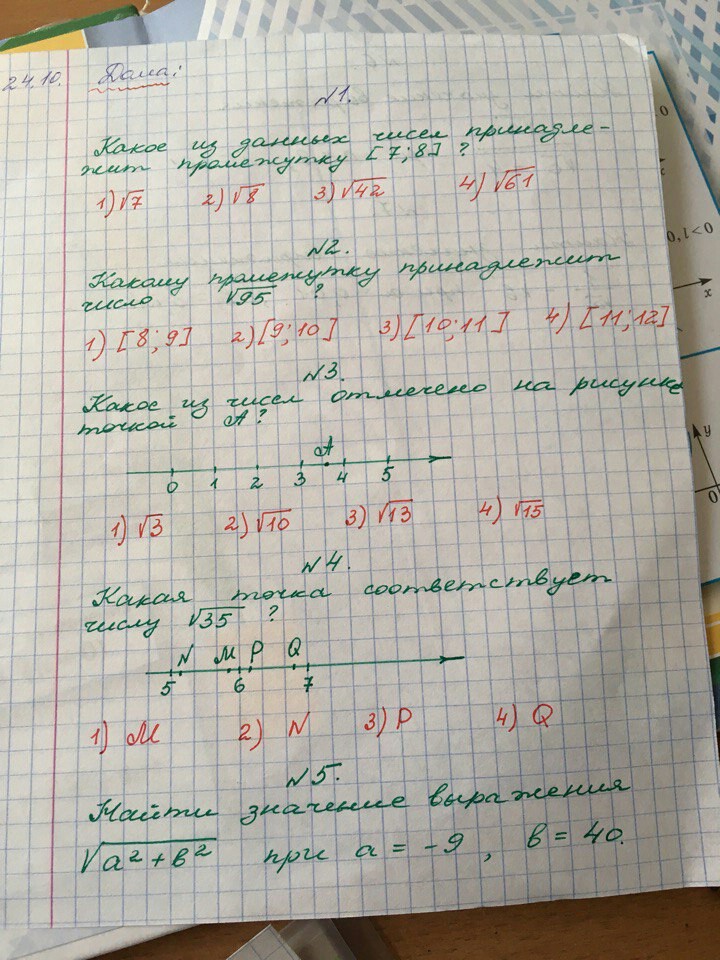 24.10. Дома:
№1.
Какое из данных чисел принадле-
жит промежутку [7;8] ?
1) √7 2) √8 3) √42 4) √61
№2.
Какому промежутку принадлежит
число √95 ?
1) [8;9] 2) [9;10] 3) [10;11] 4) [11;12]
№3.
Какое из чисел отмечено на рисунке
точкой А?
А
0 1 2 3 4 5
1) √3 2) √10 3) √13 4) √15
№4.
Какая точка соответствует
числу √35 ?
N M P Q
5 6 7
1) M 2) N 3) P 4) Q
№5.
Найти значение выражения
√a²+b² при a = -9, b = 40.
0>1,0
x
y
0